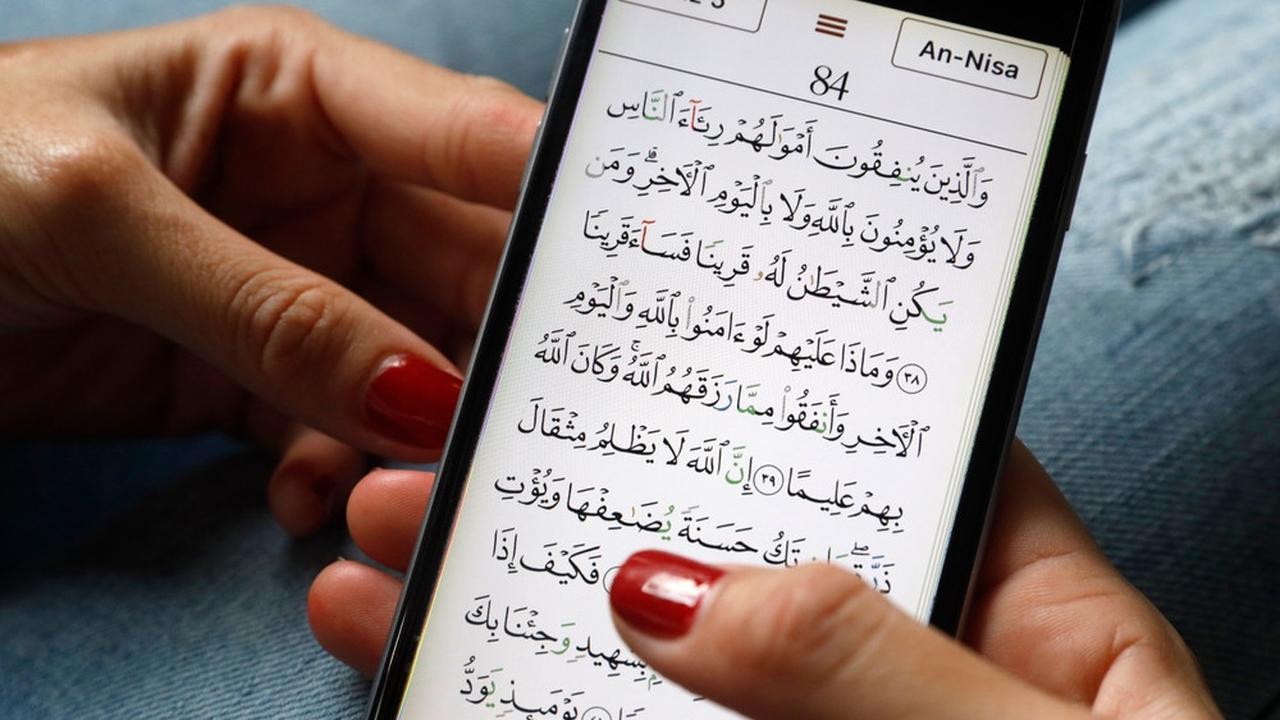 An-Nisa
84
وَٱلَّذِينَ يُنفِقُونَ أَمْوَٰلَهُمْ رِئَآءَ ٱلنَّاسِ
وَلَا يُؤْمِنُونَ بِٱللَّهِ وَلَا بِٱلْيَوْمِ ٱلْءَاخِرِ ۗ وَمَن
يَكُنِ ٱلشَّيْطَٰنُ لَهُۥ قَرِينًا فَسَآءَ قَرِينًا
٣٨ وَمَاذَا عَلَيْهِمْ لَوْ ءَامَنُوا۟ بِٱللَّهِ وَٱلْيَوْمِ
ٱلْءَاخِرِ وَأَنفَقُوا۟ مِمَّا رَزَقَهُمُ ٱللَّهُ ۚ وَكَانَ ٱللَّهُ
بِهِمْ عَلِيمًا ٣٩ إِنَّ ٱللَّهَ لَا يَظْلِمُ مِثْقَالَ
ذَرَّةٍ ۖ تَكُ حَسَنَةً يُضَٰعِفْهَا وَيُؤْتِ
فَكَيْفَ إِذَا
بِشَهِيدٍ وَجِئْنَا بِكَ
يَوْمَئِذٍ يَوَدُّ